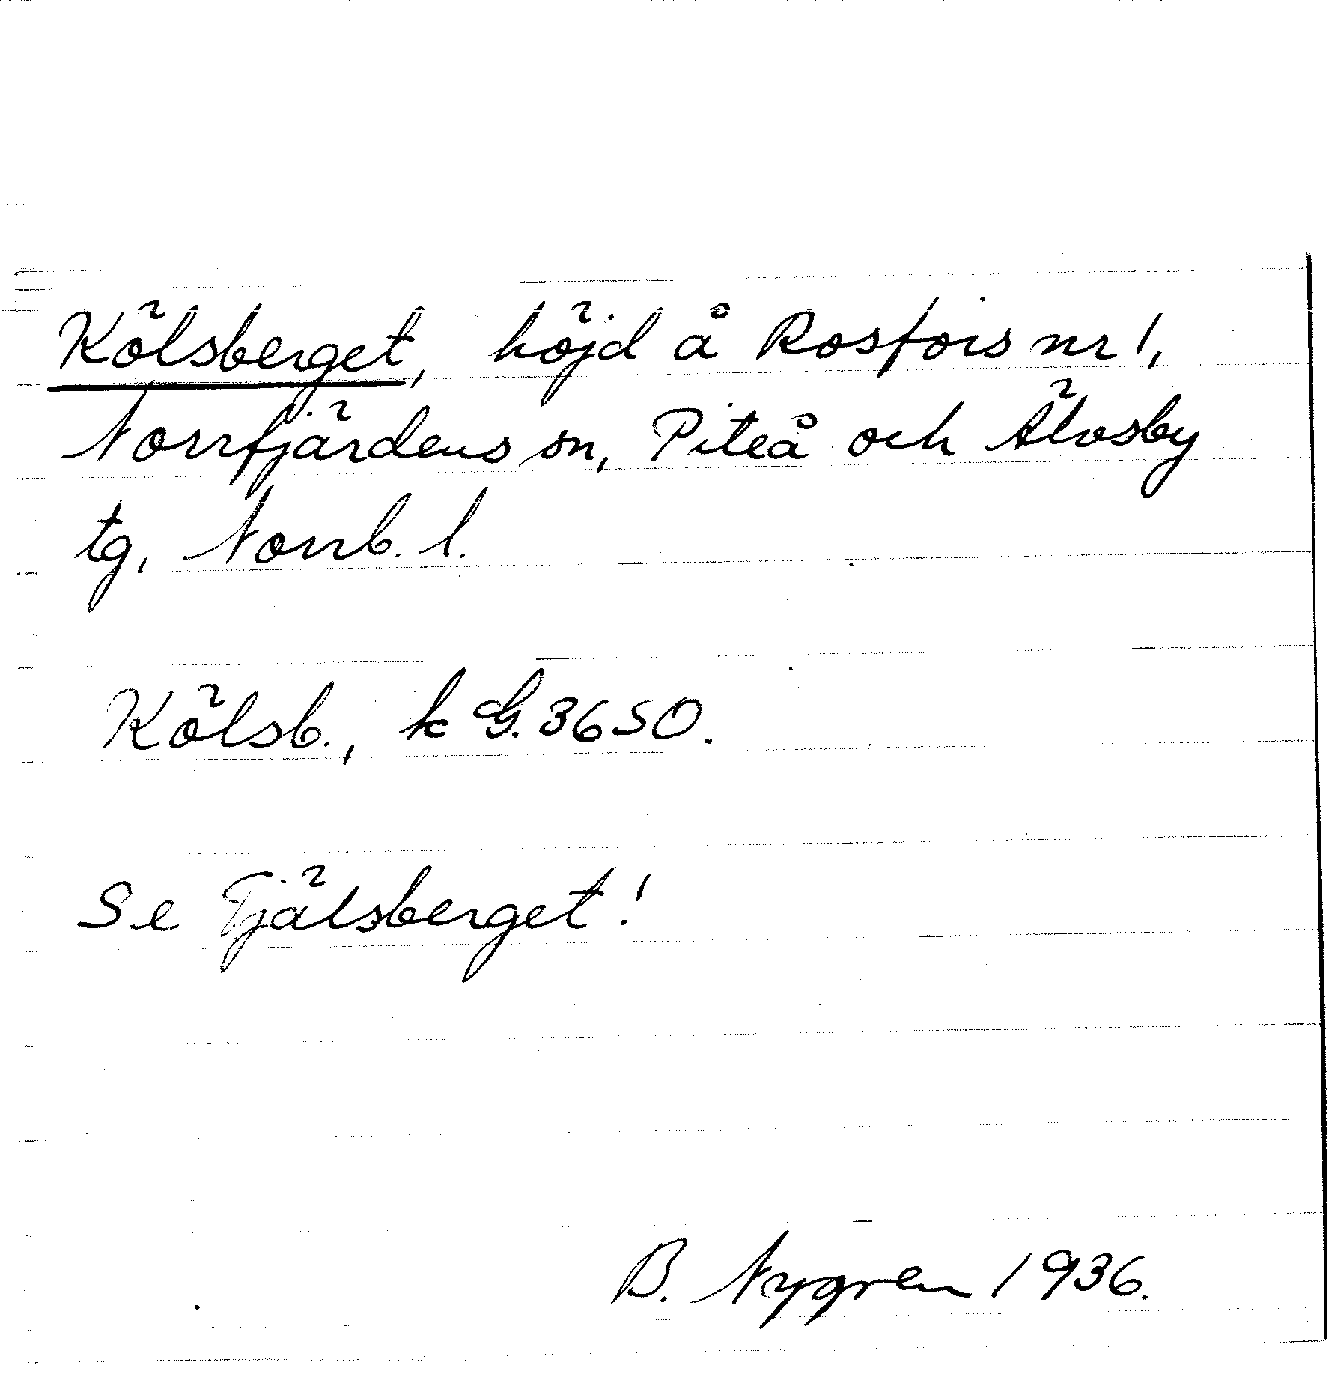 Kölsberget, höjd å Rosfors nr 1,
Norrfjärdens sn, Piteå och Älvsby
tg, Norrb. l.
Kölsb., k G. 3650.
Se Tjälsberget!
B. Nygren 1936.